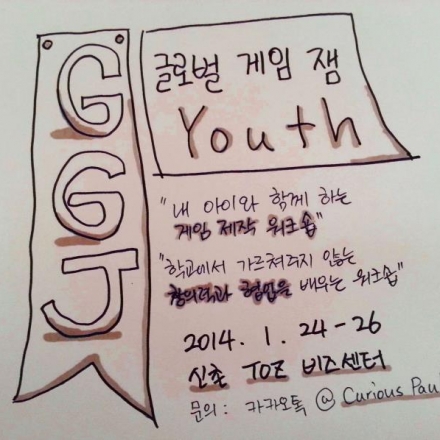 GGJ
글로벌 게임 잼
Youth
"내 아이와 함께 하는
게임 제작 워크숍"
"학교에서 가르쳐주지 않는
창의력과 협업을 배우는 워크숍"
2014. 1. 24-26
신촌 TOZ 비즈센터
문의: 카카오톡 @ Curious Pau